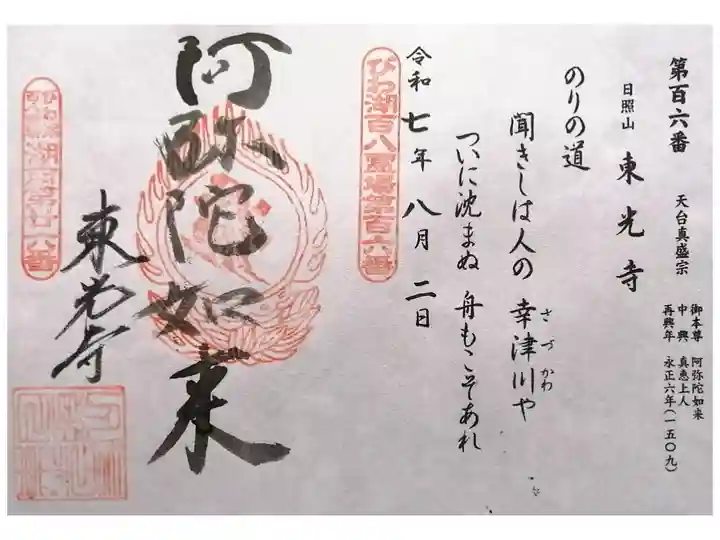 第百六番 天台真盛宗
日照山 東光寺
御本尊 阿弥陀如来
中興 真恵上人
再興年 永正六年(一五〇九)
のりの道
聞きしは人の 幸津川や
さづかわ
ついに沈まぬ 舟もこそあれ
令和七年八月二日
びわ湖百八霊場第百六番
阿弥陀如来
東光寺